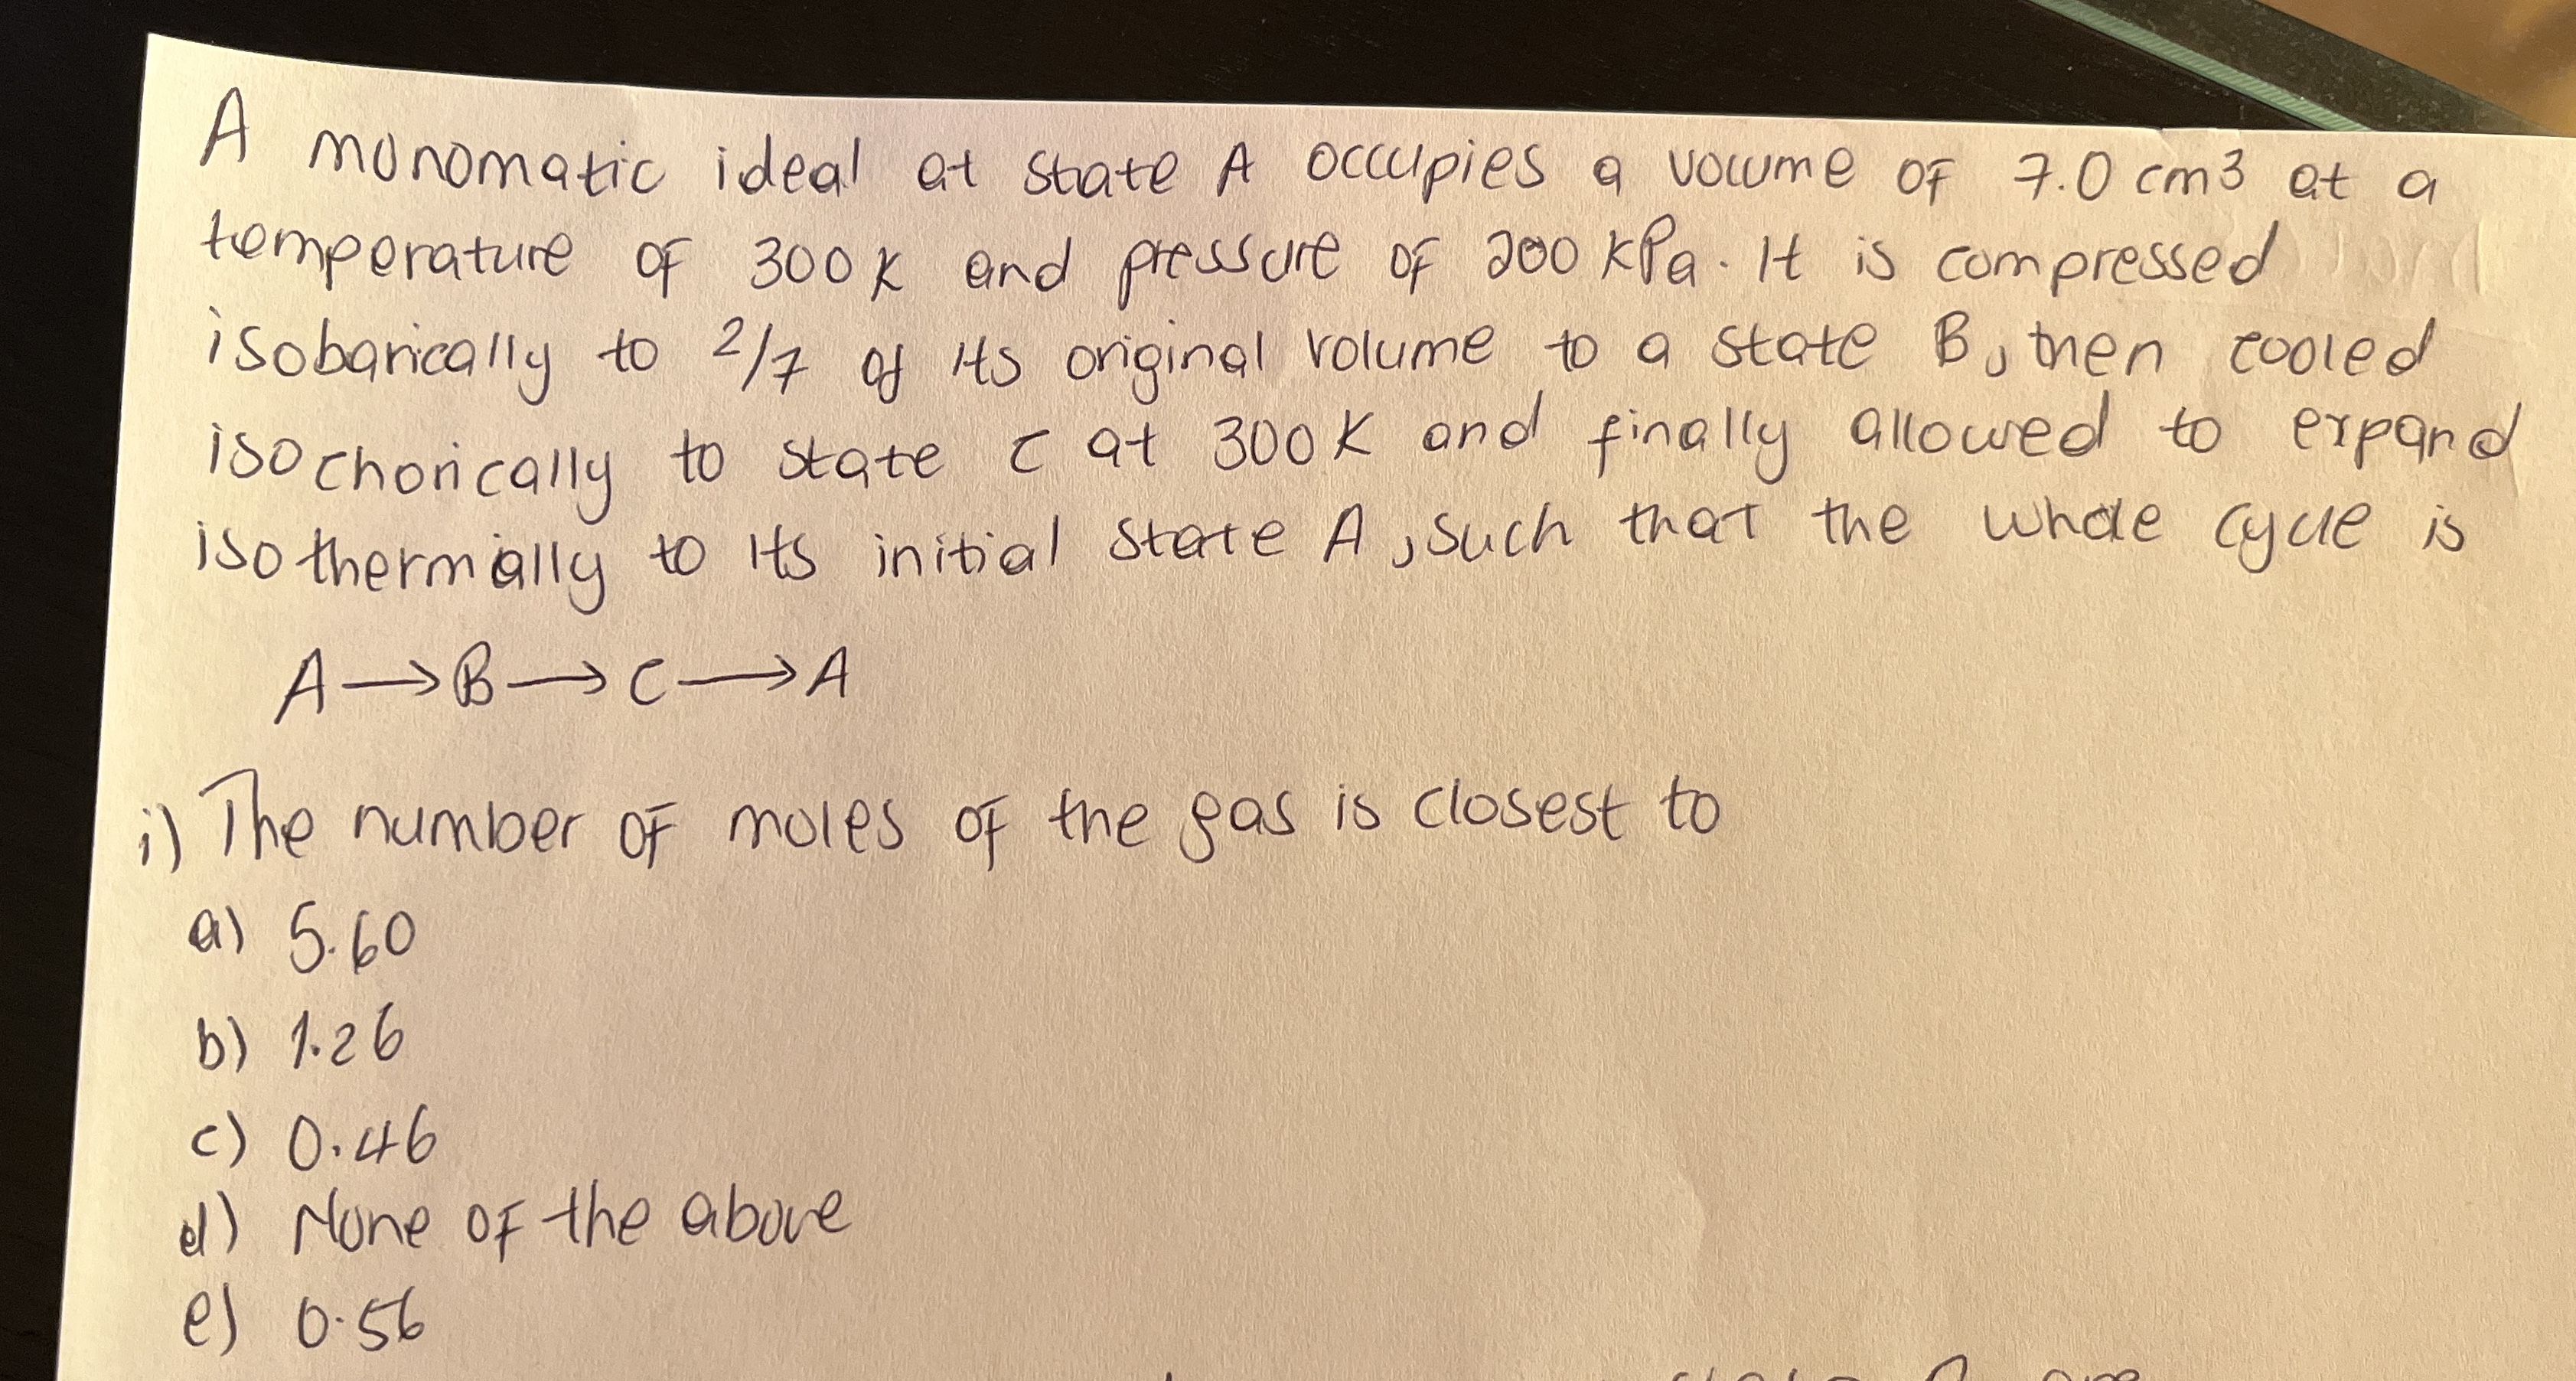 A monomatic ideal at state A occupies a volume of 7.0 cm3 at a
temperature of 300 K and pressure of 200 kPa. It is compressed
isobarically to 2/7 of its original volume to a state B, then cooled
isochorically to state C at 300K and finally allowed to expand
isothermally to its initial state A, such that the whole cycle is
A → B → C → A
i) The number of moles of the gas is closest to
a) 5.60
b) 1.26
c) 0.46
d) None of the above
e) 0.56